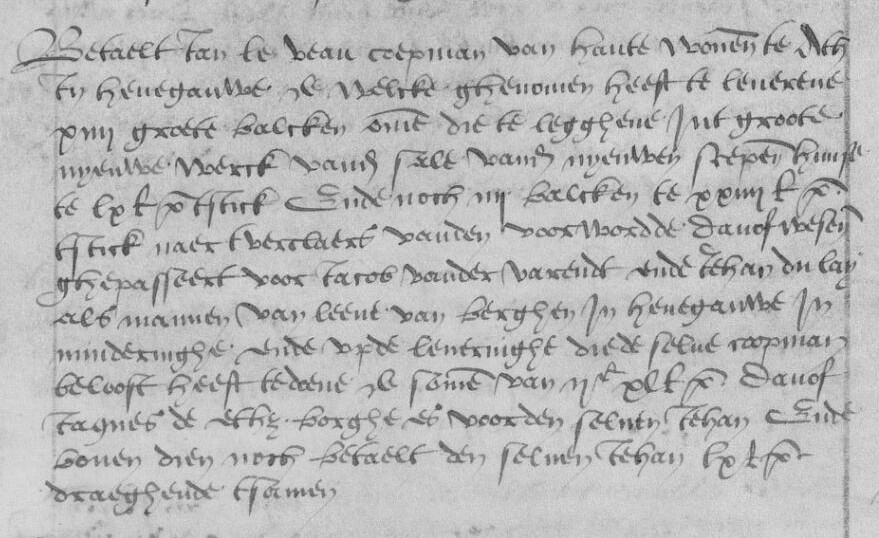 Betaelt Jan le veau coopman van haute wonen te Ath
In henegauwe de welcke ghenomen heeft te leverene
xiiij groete balcken ome die te legghene Int groote
nyeuwe werck vand sale vand nyeuwen scepen huuse
te lx £ p tstick Ende noch iij balcken te xxiiij £ p
tstick naer tverclaers vanden voorwordde danof wesen
ghepasseert voor Jacob vander varendt ende Jehan du lay
als mannen van leene van berghen In henegauwe In
minderinghe ende upde leveringhe die de selve coopman
belooft heeft te doene de some van ijc xl £ p danof
Jaques de borghe es voor den selven Jehan Ende
boven dien noch betaelt den selven Jehan lx £ p
draeghende tsamen